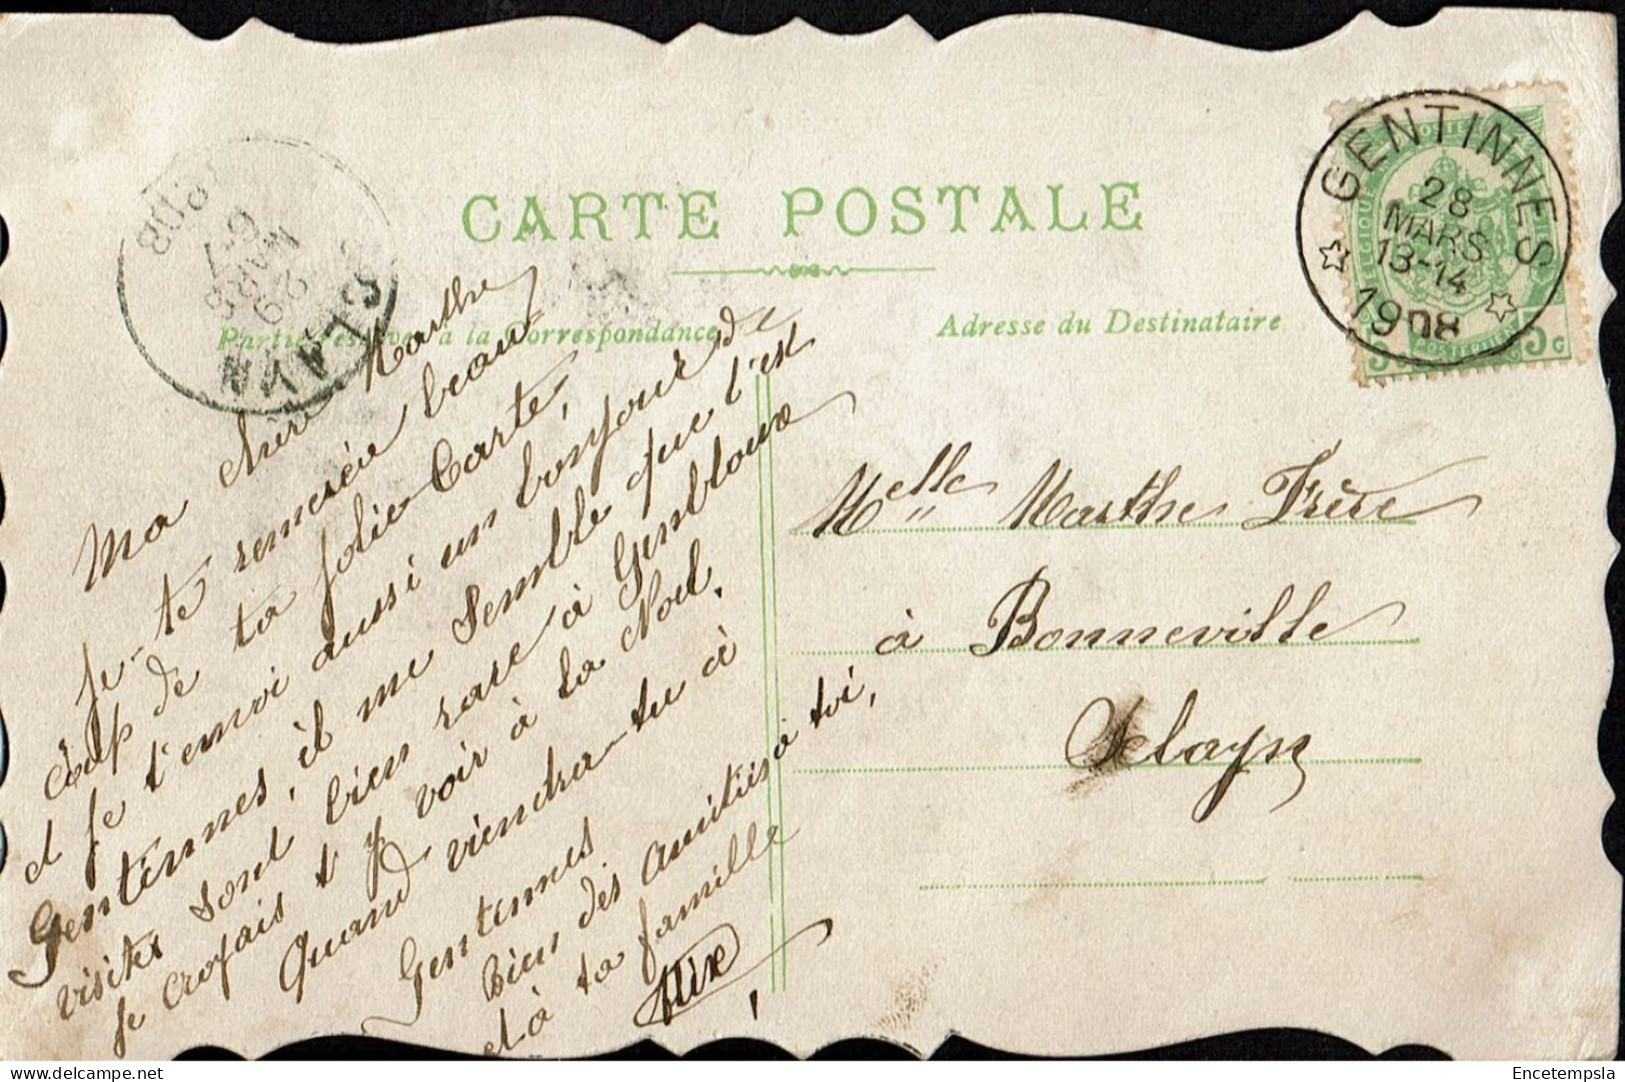 CARTE POSTALE
Partie réservée à la Correspondance
Adresse du Destinataire
GENTINNES
28
MARS
13-14
1908
SCLAYN
29
MARS
6-7
1908
BELGIQUE
POSTERIJEN
5 C
Ma chère Marthe
Je-te remercie beau-
coup de ta jolie-Carte,
et je t'envoi aussi un bonjour de
Gentinnes, il me Semble que l'est
visites sont bien rare à Gembloux
Je croyais t'y voir à la Noel.
Quand viendra-tu à
Gentinnes
Bien des amitiés à toi,
et à ta famille
Melle Marthe Frère
à Bonneville
Sclayn
Encetempsla